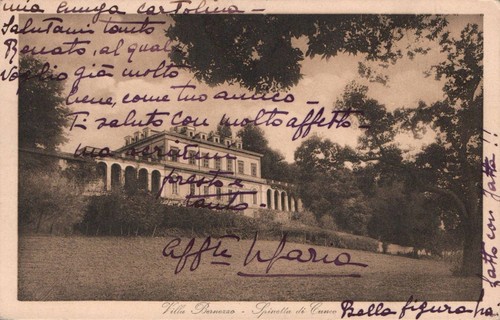 mia lunga cartolina –
Salutami tanto
Renato, al quale
voglio già molto
bene, come tuo amico –
Ti saluto con molto affetto –
ma
presto e
tanto –
Affte Maria
Villa Bernezzo - Spinetta di Cuneo
Bella figura ha
fatto con fatta !!